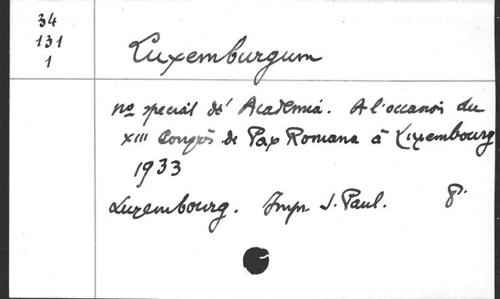 34
131
1
Luxemburgum
no special de' Academia. A l'occanoi du
XIII Congrès de Pax Romana à Luxembourg
1933
Luxembourg. Impr S. Paul. 8°.